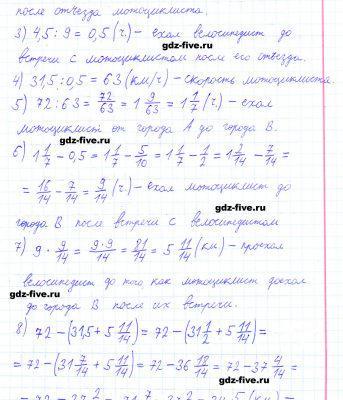 после отъезда мотоциклиста.
3) 4,5 : 9 = 0,5 (ч.) – ехал велосипедист до
gdz-five.ru
встречи с мотоциклистом после его отъезда.
gdz-five.ru
4) 31,5 : 0,5 = 63 (км/ч) – скорость мотоциклиста.
5) 72 : 63 = 72/63 = 1 9/63 = 1 1/7 (ч.) – ехал
gdz-five.ru
мотоциклист от города А до города В.
6) 1 1/7 – 0,5 = 1 1/7 – 5/10 = 1 1/7 – 1/2 = 1 2/14 – 7/14 =
gdz-five.ru
= 16/14 – 7/14 = 9/14 (ч.) – ехал мотоциклист до
gdz-five.ru
города В после встречи с велосипедистом
7) 9 · 9/14 = 9·9/14 = 81/14 = 5 11/14 (км) – проехал
gdz-five.ru
велосипедист до того как мотоциклист доехал
gdz-five.ru
до города В после их встречи.
gdz-five.ru
8) 72 – (31,5 + 5 11/14) = 72 – (31 1/2 + 5 11/14) =
= 72 – (31 7/14 + 5 11/14) = 72 – 36 18/14 = 72 – 37 4/14 =
gdz-five.ru